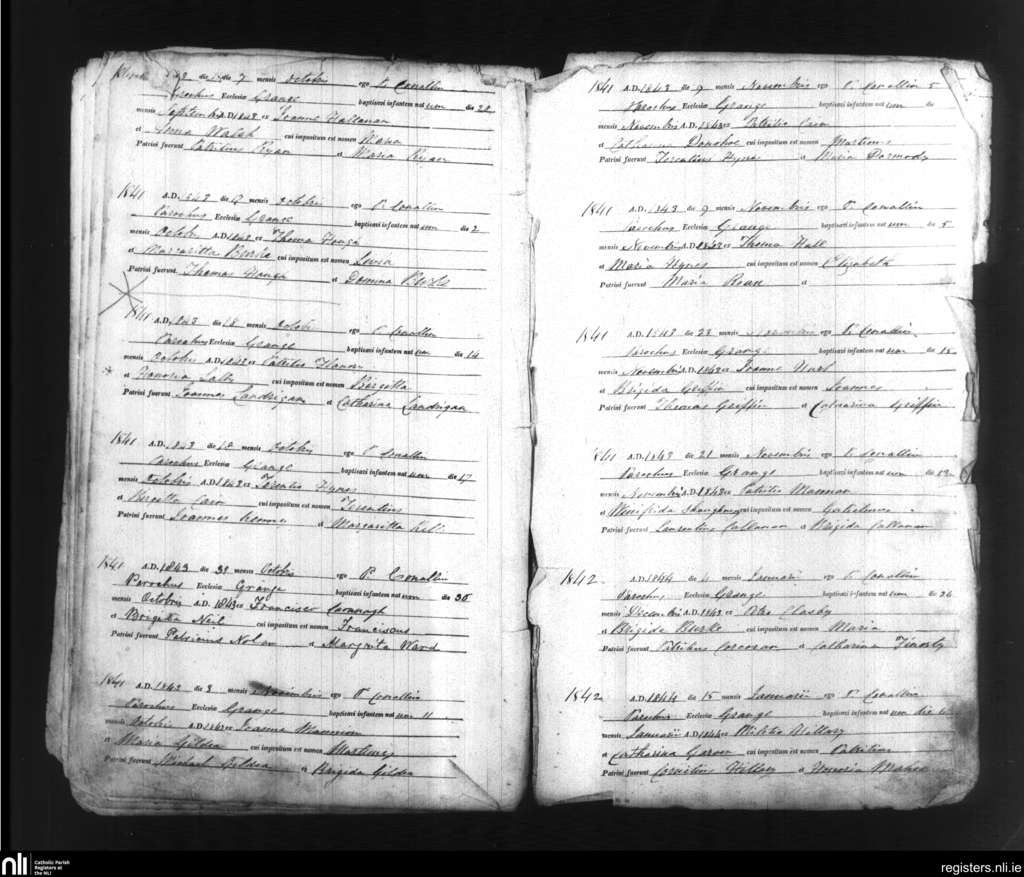 die 7 mensis Octobris ego P. Conallin
Parochus Ecclesiæ Grange baptizavi infantem natum die 22
mensis Septembris A.D. 1843 ex Joanne Hallanan
et Anna Walsh cui impositum est nomen Maria
Patrini fuerunt Patritius Ryan et Maria Ryan
1841 A.D. 1843 die 9 mensis Octobris ego P. Conallin
Parochus Ecclesiæ Grange baptizavi infantem natum die 2
mensis Octobris A.D. 1843 ex Thoma
et Margaritta Burke cui impositum est nomen
Patrini fuerunt Thomas et
1841 A.D. 1843 die 18 mensis Octobris ego P. Conallin
Parochus Ecclesiæ Grange baptizavi infantem natum die 14
mensis Octobris A.D. 1843 ex Patritio
et Honoria Lally cui impositum est nomen Birgitta
Patrini fuerunt Joannes Landrigan et Catharina Landrigan
1841 A.D. 1843 die 18 mensis Octobris ego P. Conallin
Parochus Ecclesiæ Grange baptizavi infantem natum die 17
mensis Octobris A.D. 1843 ex Terentio Hynes
et Birgitta cui impositum est nomen Terentius
Patrini fuerunt Joannes et Margaritta
1841 A.D. 1843 die 31 mensis Octobris ego P. Conallin
Parochus Ecclesiæ Grange baptizavi infantem natum die 30
mensis Octobris A.D. 1843 ex Francisco Cavanagh
et Brigitta Neil cui impositum est nomen Franciscus
Patrini fuerunt Patricius Nolan et Margrita Ward
1841 A.D. 1843 die 3 mensis Novembris ego P. Conallin
Parochus Ecclesiæ Grange baptizavi infantem natum 11
mensis Octobris A.D. 1843 ex Joanne Mannion
et Maria Gildea cui impositum est nomen Martinus
Patrini fuerunt Michael Gildea et Brigida Gildea
1841 A.D. 1843 die 9 mensis Novembris ego P. Conallin 5
Parochus Ecclesiæ Grange baptizavi infantem natum die
mensis Novembris A.D. 1843 ex Patritio
et Catharina Donohoe cui impositum est nomen Martinus
Patrini fuerunt Terentius Hynes et Maria Dermody
1841 A.D. 1843 die 9 mensis Novembris ego P. Conallin
Parochus Ecclesiæ Grange baptizavi infantem natum die 5
mensis Novembris A.D. 1843 ex Thoma Hall
et Maria Hynes cui impositum est nomen Elizabeth
Patrini fuerunt Maria et
1841 A.D. 1843 die 23 mensis Novembris ego P. Conallin
Parochus Ecclesiæ Grange baptizavi infantem natum die 15
mensis Novembris A.D. 1843 ex Joanne
et Brigida Griffin cui impositum est nomen Joannes
Patrini fuerunt Thomas Griffin et Catharina Griffin
1841 A.D. 1843 die 21 mensis Novembris ego P. Conallin
Parochus Ecclesiæ Grange baptizavi infantem natum die
mensis Novembris A.D. 1843 ex Patritio Mannion
et Winifrida cui impositum est nomen
Patrini fuerunt Laurentius Callanan et Brigida Callanan
1842 A.D. 1844 die 4 mensis Januarii ego P. Conallin
Parochus Ecclesiæ Grange baptizavi infantem natum die 26
mensis Decembris A.D. 1843 ex Clasby
et Brigida Burke cui impositum est nomen Maria
Patrini fuerunt Patritius Corcoran et Catharina
1842 A.D. 1844 die 15 mensis Januarii ego P. Conallin
Parochus Ecclesiæ Grange baptizavi infantem natum die
mensis Januarii A.D. 1844 ex
et Catharina cui impositum est nomen Patritius
Patrini fuerunt et Honoria Maher
nli Catholic Parish
Registers at
the NLI
registers.nli.ie